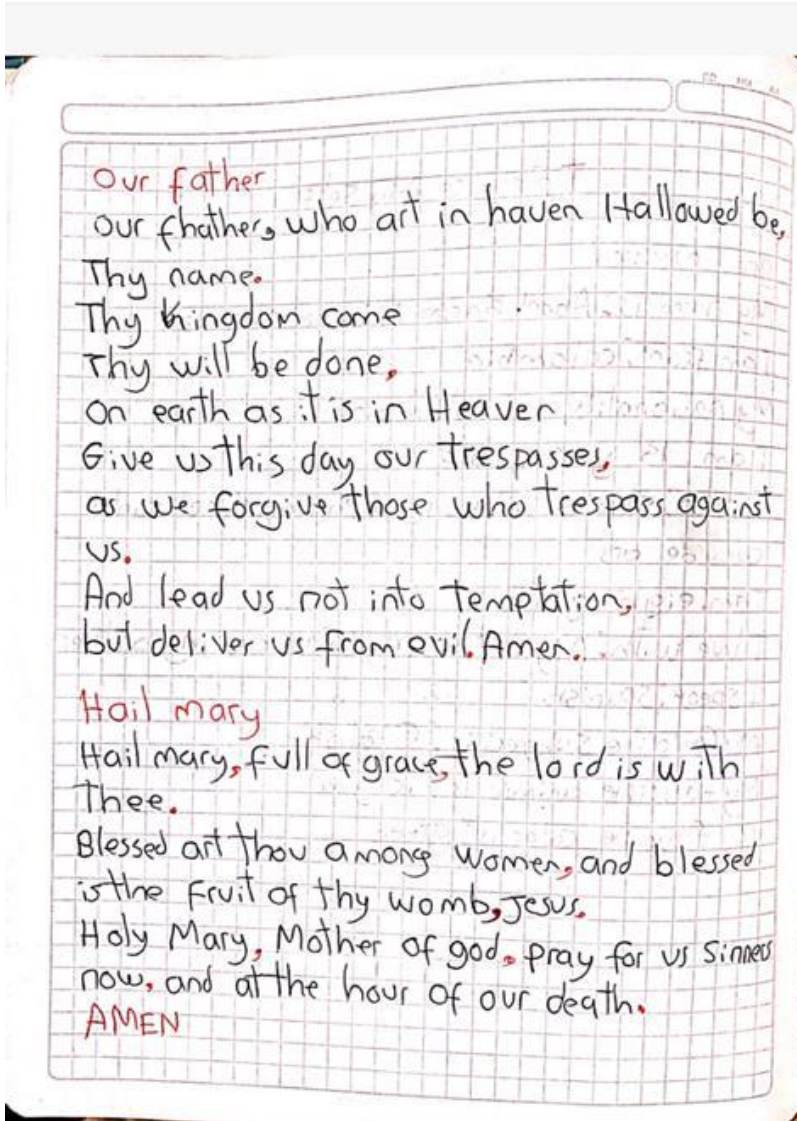 Our father
our fhather, who art in haven Hallowed be,
Thy name.
Thy Kingdom come
Thy will be done,
on earth as it is in Heaven
Give us this day our trespasses,
as we forgive those who trespass against
us.
And lead us not into temptation,
but deliver us from evil. Amen.
Hail mary
Hail mary, full of grace, the lord is with
Thee.
Blessed art thou among women, and blessed
is the fruit of thy womb, Jesus.
Holy Mary, Mother of god, pray for us sinners
now, and at the hour of our death.
AMEN